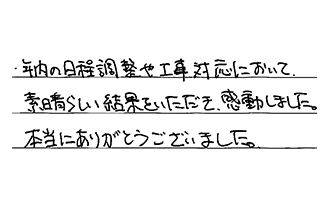 ・年内の日程調整や工事対応において、
素晴らしい結果をいただき、感動しました。
本当にありがとうございました。